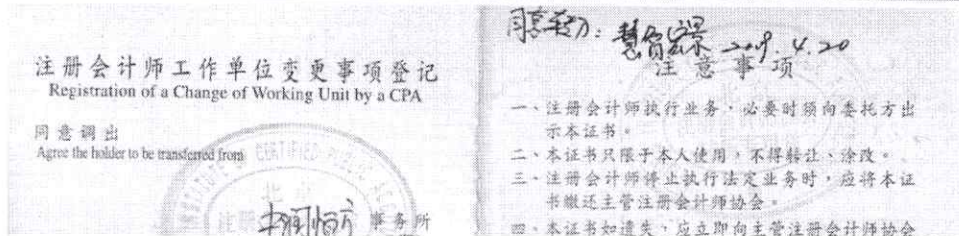 注册会计师工作单位变更事项登记
Registration of a Change of Working Unit by a CPA
同意调出
Agree the holder to be transferred from
事务所
2019.4.20
注意事项
一、注册会计师执行业务，必要时须向委托方出
示本证书。
二、本证书只限于本人使用，不得转让、涂改。
三、注册会计师停止执行法定业务时，应将本证
书缴还主管注册会计师协会。
四、本证书如遗失，应立即向主管注册会计师协会